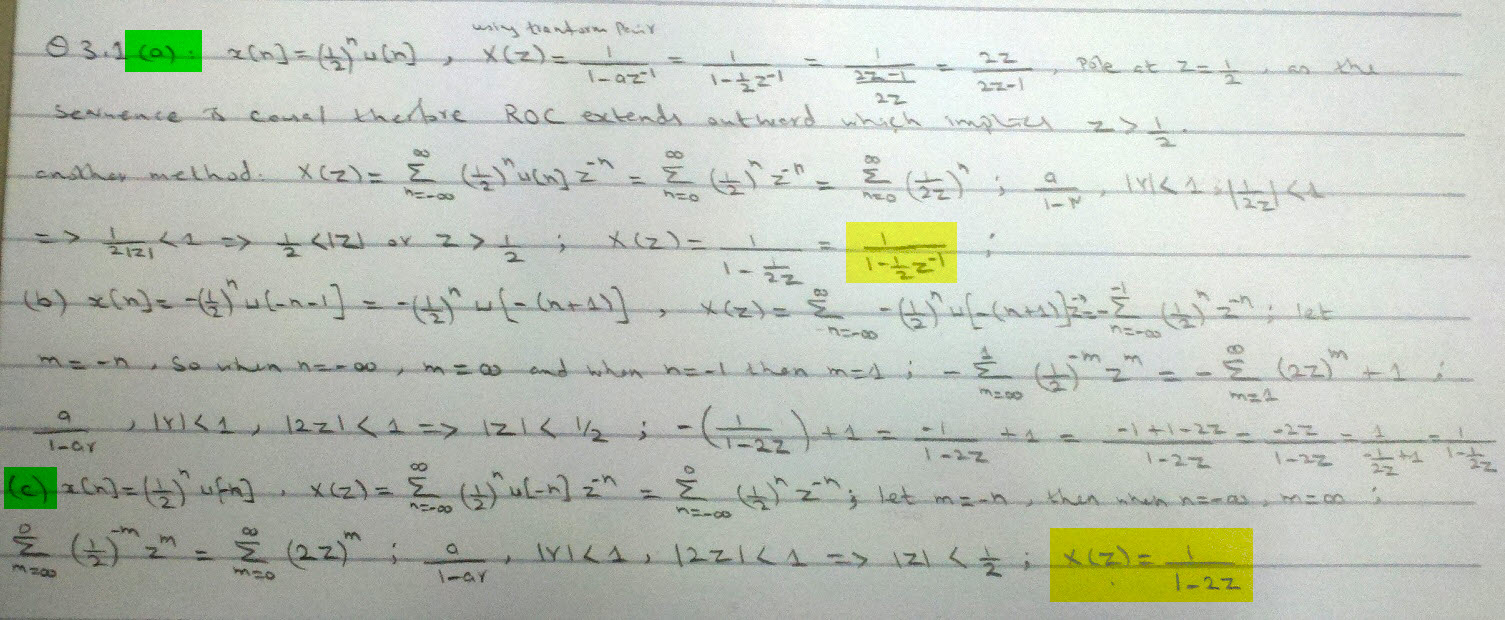 using transform Pair
Q 3.1 (a): x[n]=(1/2)^n u[n] , X(z)= 1/(1-az^-1) = 1/(1-1/2 z^-1) = 1/((2z-1)/2z) = 2z/(2z-1) , Pole at z=1/2 , as the
sequence is causal therefore ROC extends outward which implies z > 1/2.
another method. X(z)= Σ_{n=-∞}^{∞} (1/2)^n u[n] z^-n = Σ_{n=0}^{∞} (1/2)^n z^-n = Σ_{n=0}^{∞} (1/2z)^n ; a/(1-r) , |r|<1 ; |1/2z|<1
=> 1/2|z| <1 => 1/2 <|z| or z > 1/2 ; X(z)= 1/(1-1/2z) = 1/(1-1/2 z^-1) ;
(b) x[n]= -(1/2)^n u[-n-1] = -(1/2)^n u[-(n+1)] , X(z)= Σ_{n=-∞}^{∞} -(1/2)^n u[-(n+1)]z^-n = -Σ_{n=-∞}^{-1} (1/2)^n z^-n ; let
m=-n , so when n=-∞ , m=∞ and when n=-1 then m=1 ; -Σ_{m=∞}^{1} (1/2)^-m z^m = -Σ_{m=1}^{∞} (2z)^m +1 ;
a/(1-ar) , |r|<1 , |2z|<1 => |z| < 1/2 ; -(1/(1-2z)) +1 = -1/(1-2z) +1 = (-1+1-2z)/(1-2z) = -2z/(1-2z) = 1/(-1/2z +1) = 1/(1-1/2z)
(c) x[n]=(1/2)^n u[-n] , X(z)= Σ_{n=-∞}^{∞} (1/2)^n u[-n] z^-n = Σ_{n=-∞}^{0} (1/2)^n z^-n ; let m=-n , then when n=-∞, m=∞ ;
Σ_{m=∞}^{0} (1/2)^-m z^m = Σ_{m=0}^{∞} (2z)^m ; a/(1-ar) , |r|<1 , |2z|<1 => |z| < 1/2 ; X(z)= 1/(1-2z)